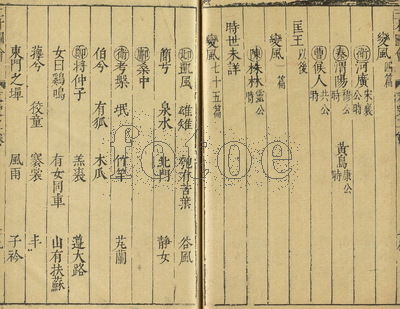 變風四篇
衛 河廣 宋襄公時
秦 渭陽 穆公時 黃鳥 康公時
曹 候人 共公時
匡王以後
變風一篇
陳 株林 靈公時
時世未詳
變風七十五篇
邶 凱風 雄雉 匏有苦葉 谷風
簡兮 泉水 北門 靜女
鄘 桑中
衛 考槃 氓 竹竿 芄蘭
伯兮 有狐 木瓜
鄭 將仲子 羔裘 遵大路
女曰雞鳴 有女同車 山有扶蘇
蘀兮 狡童 褰裳 丰
東門之墠 風雨 子衿
fotoe